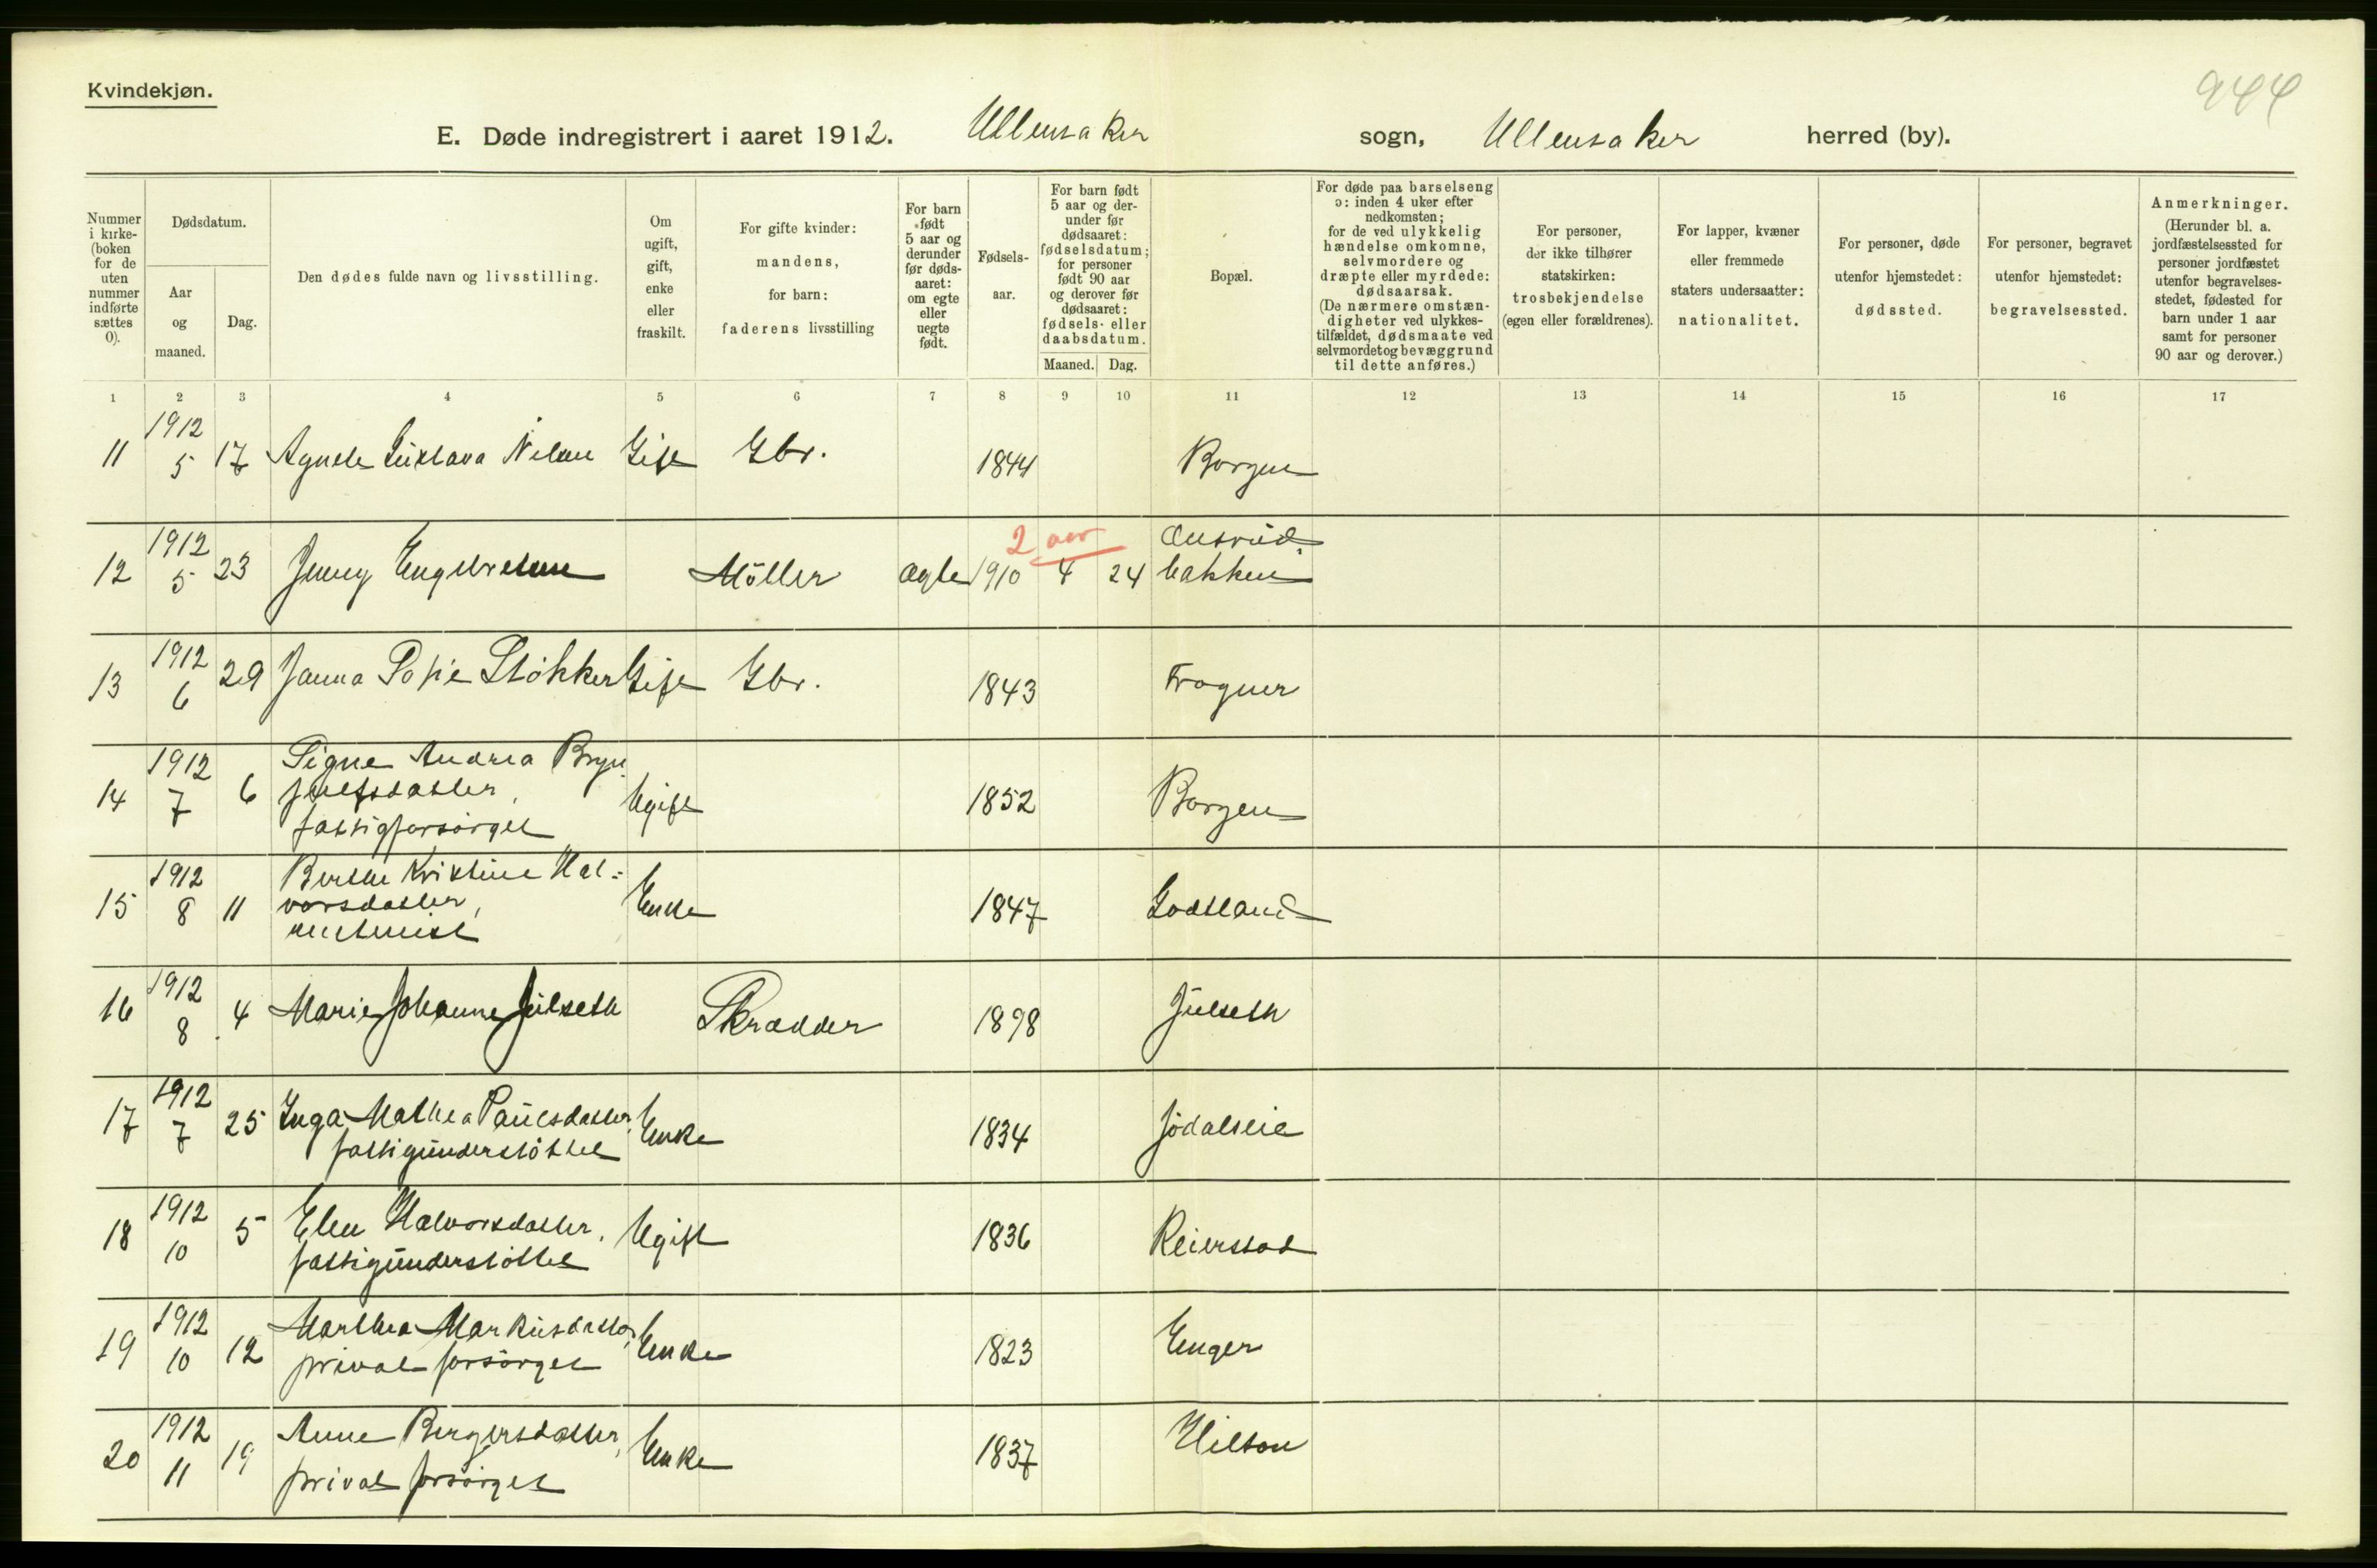 Kvindekjøn.
944
E. Døde indregistrert i aaret 1912. Ullensaker sogn, Ullensaker herred (by).
Nummer i kirke- (boken for de uten nummer indførte sættes 0).
Dødsdatum.
Aar og maaned.
Dag.
Den dødes fulde navn og livsstilling.
Om ugift, gift, enke eller fraskilt.
For gifte kvinder: mandens, for barn: faderens livsstilling
For barn født 5 aar og derunder før døds- aaret: om egte eller uegte født.
Fødsels- aar.
For barn født 5 aar og der- under før dødsaaret: fødselsdatum; for personer født 90 aar og derover før dødsaaret: fødsels- eller daabsdatum.
Maaned. Dag.
Bopæl.
For døde paa barselseng ɔ: inden 4 uker efter nedkomsten; for de ved ulykkelig hændelse omkomne, selvmordere og dræpte eller myrdede: dødsaarsak. (De nærmere omstæn- digheter ved ulykkes- tilfældet, dødsmaate ved selvmordet og bevæggrund til dette anføres.)
For personer, der ikke tilhører statskirken: trosbekjendelse (egen eller forældrenes).
For lapper, kvæner eller fremmede staters undersaatter: nationalitet.
For personer, døde utenfor hjemstedet: dødssted.
For personer, begravet utenfor hjemstedet: begravelsessted.
Anmerkninger. (Herunder bl. a. jordfæstelsessted for personer jordfæstet utenfor begravelses- stedet, fødested for barn under 1 aar samt for personer 90 aar og derover.)
1 2 3 4 5 6 7 8 9 10 11 12 13 14 15 16 17
1912
11 5 17 Agnete Gustava Nilsen Gift Gbr. 1844 Borgen
1912 2 aar Ausrud
12 5 23 Jenny Engebretsen Möller ægte 1910 4 24 bakken
1912
13 6 29 Janna Sofie Stökker Gift Gbr. 1843 Frogner
1912 Signe Andrea Bryn
14 7 6 julfsdatter, Ugift 1852 Borgen
fattigforsörget
1912 Berthe Kristine Hal=
15 8 11 vorsdatter, Enke 1847 Godtland
1912
16 8 4 Marie Johanne Julseth Skrædder 1898 Julseth
1912
17 7 25 Inga Mathea Paulsdatter, Enke 1834 Jödalseie
fattigunderstöttet
1912
18 10 5 Elen Halvorsdatter, Ugift 1836 Reierstad
fattigunderstöttet
1912 Marthea Markusdatter,
19 10 12 privat forsörget Enke 1823 Enger
1912 Anne Bergersdatter,
20 11 19 privat forsörget Enke 1837 Hilton